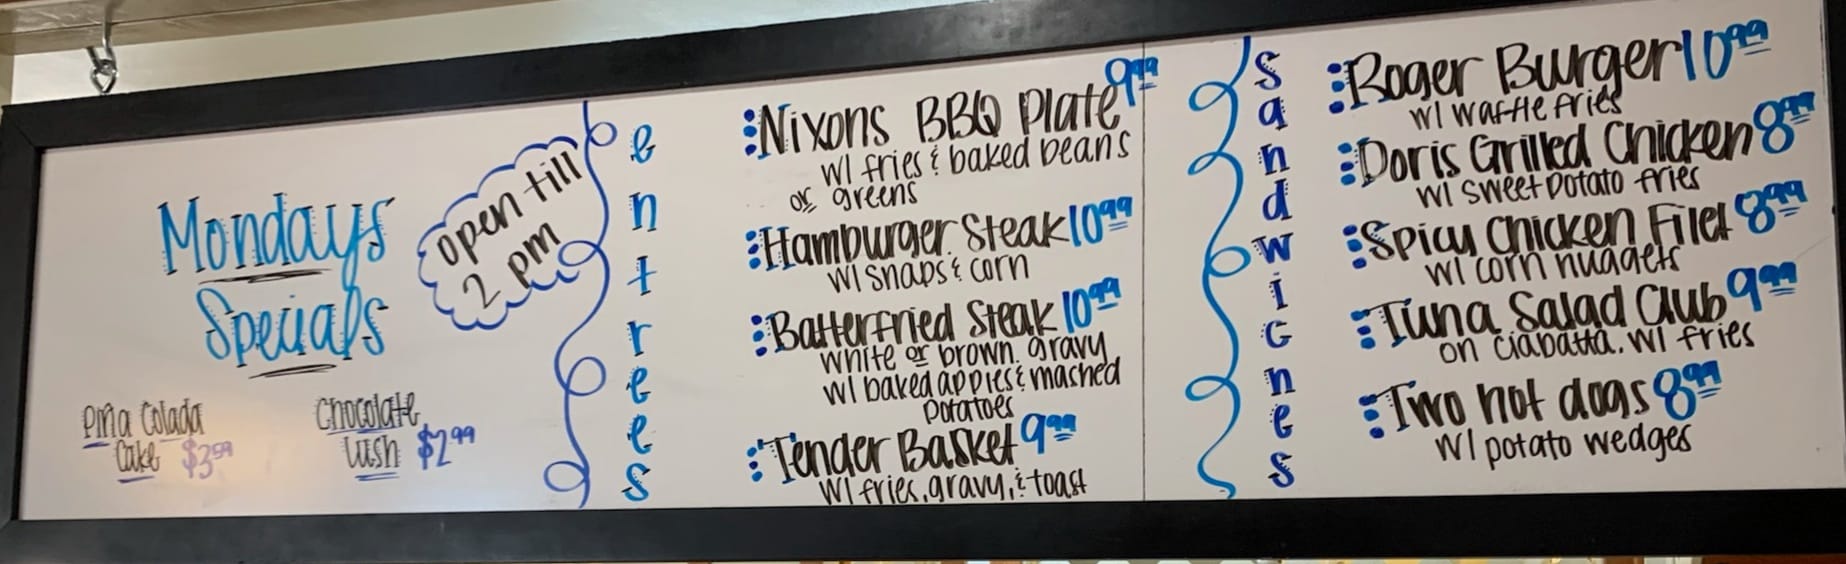 Mondays
Specials
open till
2 pm
Piña Colada
Cake $3.99
Chocolate
Lush $2.99
entrees
Nixons BBQ Plate 9.99
w/ fries & baked beans
or greens
Hamburger Steak 10.99
w/ snaps & corn
Batterfried Steak 10.99
white or brown gravy
w/ baked apples & mashed
potatoes
Tender Basket 9.99
w/ fries, gravy, & toast
sandwicnes
Roger Burger 10.99
w/ waffle fries
Doris Grilled Chicken 8.99
w/ sweet potato fries
Spicy Chicken Filet 8.99
w/ corn nuggets
Tuna Salad Club 9.99
on ciabatta. w/ fries
Two hot dogs 8.99
w/ potato wedges